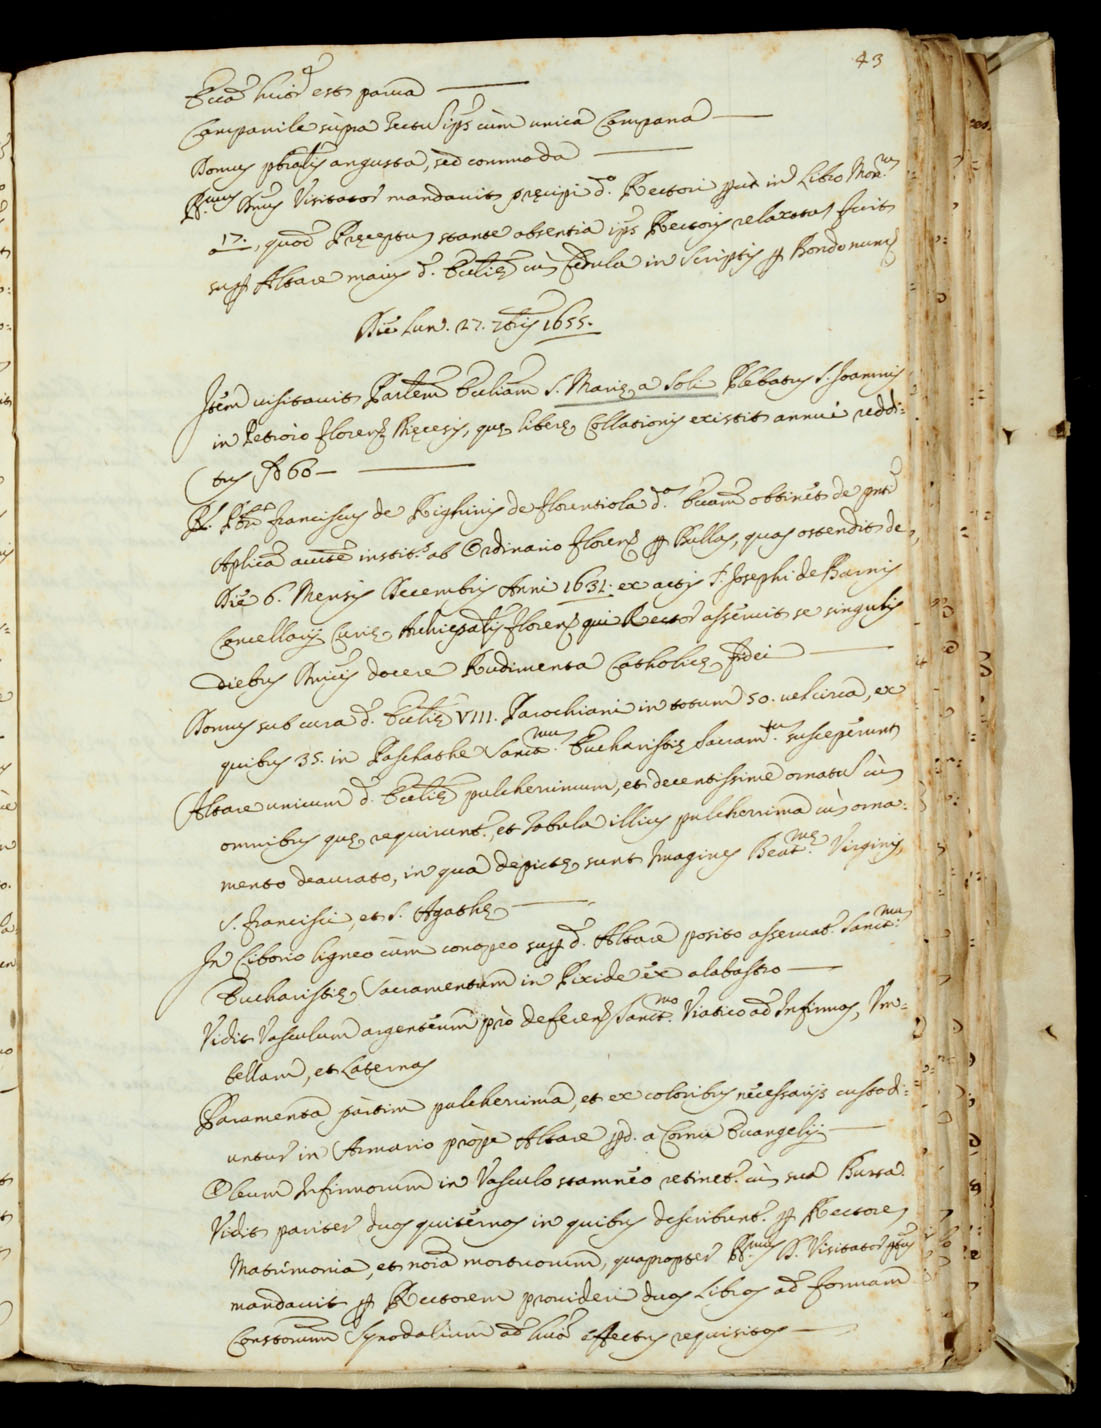 43
Eccā huiꝰ est parua
Campanile supra Tectū ip̄s cùm unica Campana
Domus p̄br̄alis angusta, sed commoda
Ill.mus Dn̄us Visitator mandauit pręcipi d.o Rectori put in Libro Mon.rum
a 17., quod Pręceptum stante absentia ip̄s Rectoris relaxatum fuit
sup Altare maius d. Ecclię cū Cedula in Scriptis p Bondonum
Die Lun. 27. 7bris 1655.
Item uisitauit Par̄lem Eccliam S. Marię a Soli Plebatus S. Joannis
in Petroio floren. Dięcesis, quę liberę Collationis existit annui reddi-
tus ∇ 60-
R. Pbr̄ franciscus de Righinis de florentiola d.a Eccam obtinet de pn̄ti
Aplica aucte instit. ab Ordinario floren. p Bullas, quas ostendit de
Die 6. Mensis Decembris Anni 1631: ex actis f. Josephi de Barnis
Cancellarij Curię Archiepālis floren. qui Rector asseruit se singulis
diebus Dn̄icis docere Rudimenta Catholicę fidei
Domus sub cura d. Ecclię VIII. Parochiani in totum 50. uel circa, ex
quibus 35. in Paschathe Sanct.mum Eucharistię Sacram.tum susceperunt
Altare unicum d. Ecclię pulcherrimum, et decentissime ornatū cū
omnibus quę requirunt., et Tabula illius pulcherrima cū orna-
mento deaurato, in qua depictę sunt Imagines Beat.mę Virginis,
S. francisci, et S. Agathę
In Ciborio ligneo cùm conopeo sup d. Altare posito asseruat. Sanct.mum
Eucharistię Sacramentum in Pixide ex alabastro
Vidit Vasculum argenteum pro deferen. Sanct.mo Viatico ad Infirmos, Um-
bellam, et Laternas
Paramenta partim pulcherrima, et ex coloribus necessarijs custodi-
untur in Armario prope Altare pd. a Cornu Euangelij
Oleum Infirmorum in Vasculo stamneo retinet. cū sua Bursa.
Vidit pariter duos quiternos in quibus describunt. p Rectorem
Matrimonia, et noīa mortuorum, quapropter Ill.mus D. Visitator
mandauit p Rectorem prouideri duos Libros ad formam
Constōnum Synodalium ad huc effectum requisitos